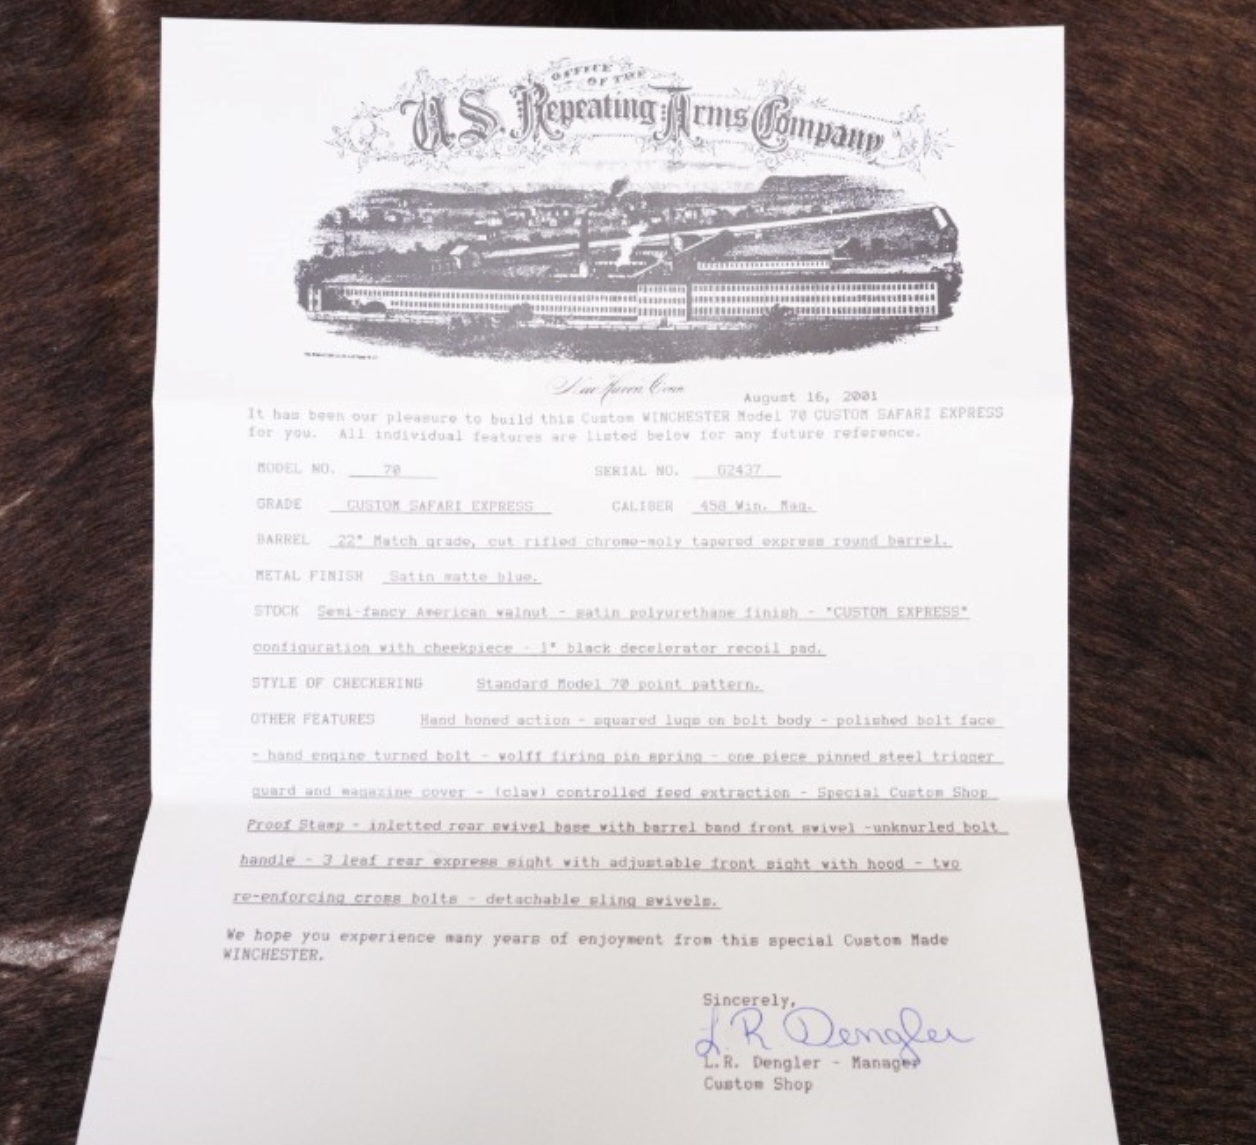 OFFICE
OF THE
U.S. Repeating Arms Company
New Haven Conn
August 16, 2001
It has been our pleasure to build this Custom WINCHESTER Model 70 CUSTOM SAFARI EXPRESS
for you. All individual features are listed below for any future reference.
MODEL NO. 70 SERIAL NO. G2437
GRADE CUSTOM SAFARI EXPRESS CALIBER 458 Win. Mag.
BARREL 22" Match grade, cut rifled chrome-moly tapered express round barrel.
METAL FINISH Satin matte blue.
STOCK Semi-fancy American walnut - satin polyurethane finish - "CUSTOM EXPRESS"
configuration with cheekpiece - 1" black decelerator recoil pad.
STYLE OF CHECKERING Standard Model 70 point pattern.
OTHER FEATURES Hand honed action - squared lugs on bolt body - polished bolt face
- hand engine turned bolt - wolff firing pin spring - one piece pinned steel trigger
guard and magazine cover - (claw) controlled feed extraction - Special Custom Shop
Proof Stamp - inletted rear swivel base with barrel band front swivel -unknurled bolt
handle - 3 leaf rear express sight with adjustable front sight with hood - two
re-enforcing cross bolts - detachable sling swivels.
We hope you experience many years of enjoyment from this special Custom Made
WINCHESTER.
Sincerely,
L.R. Dengler
L.R. Dengler - Manager
Custom Shop